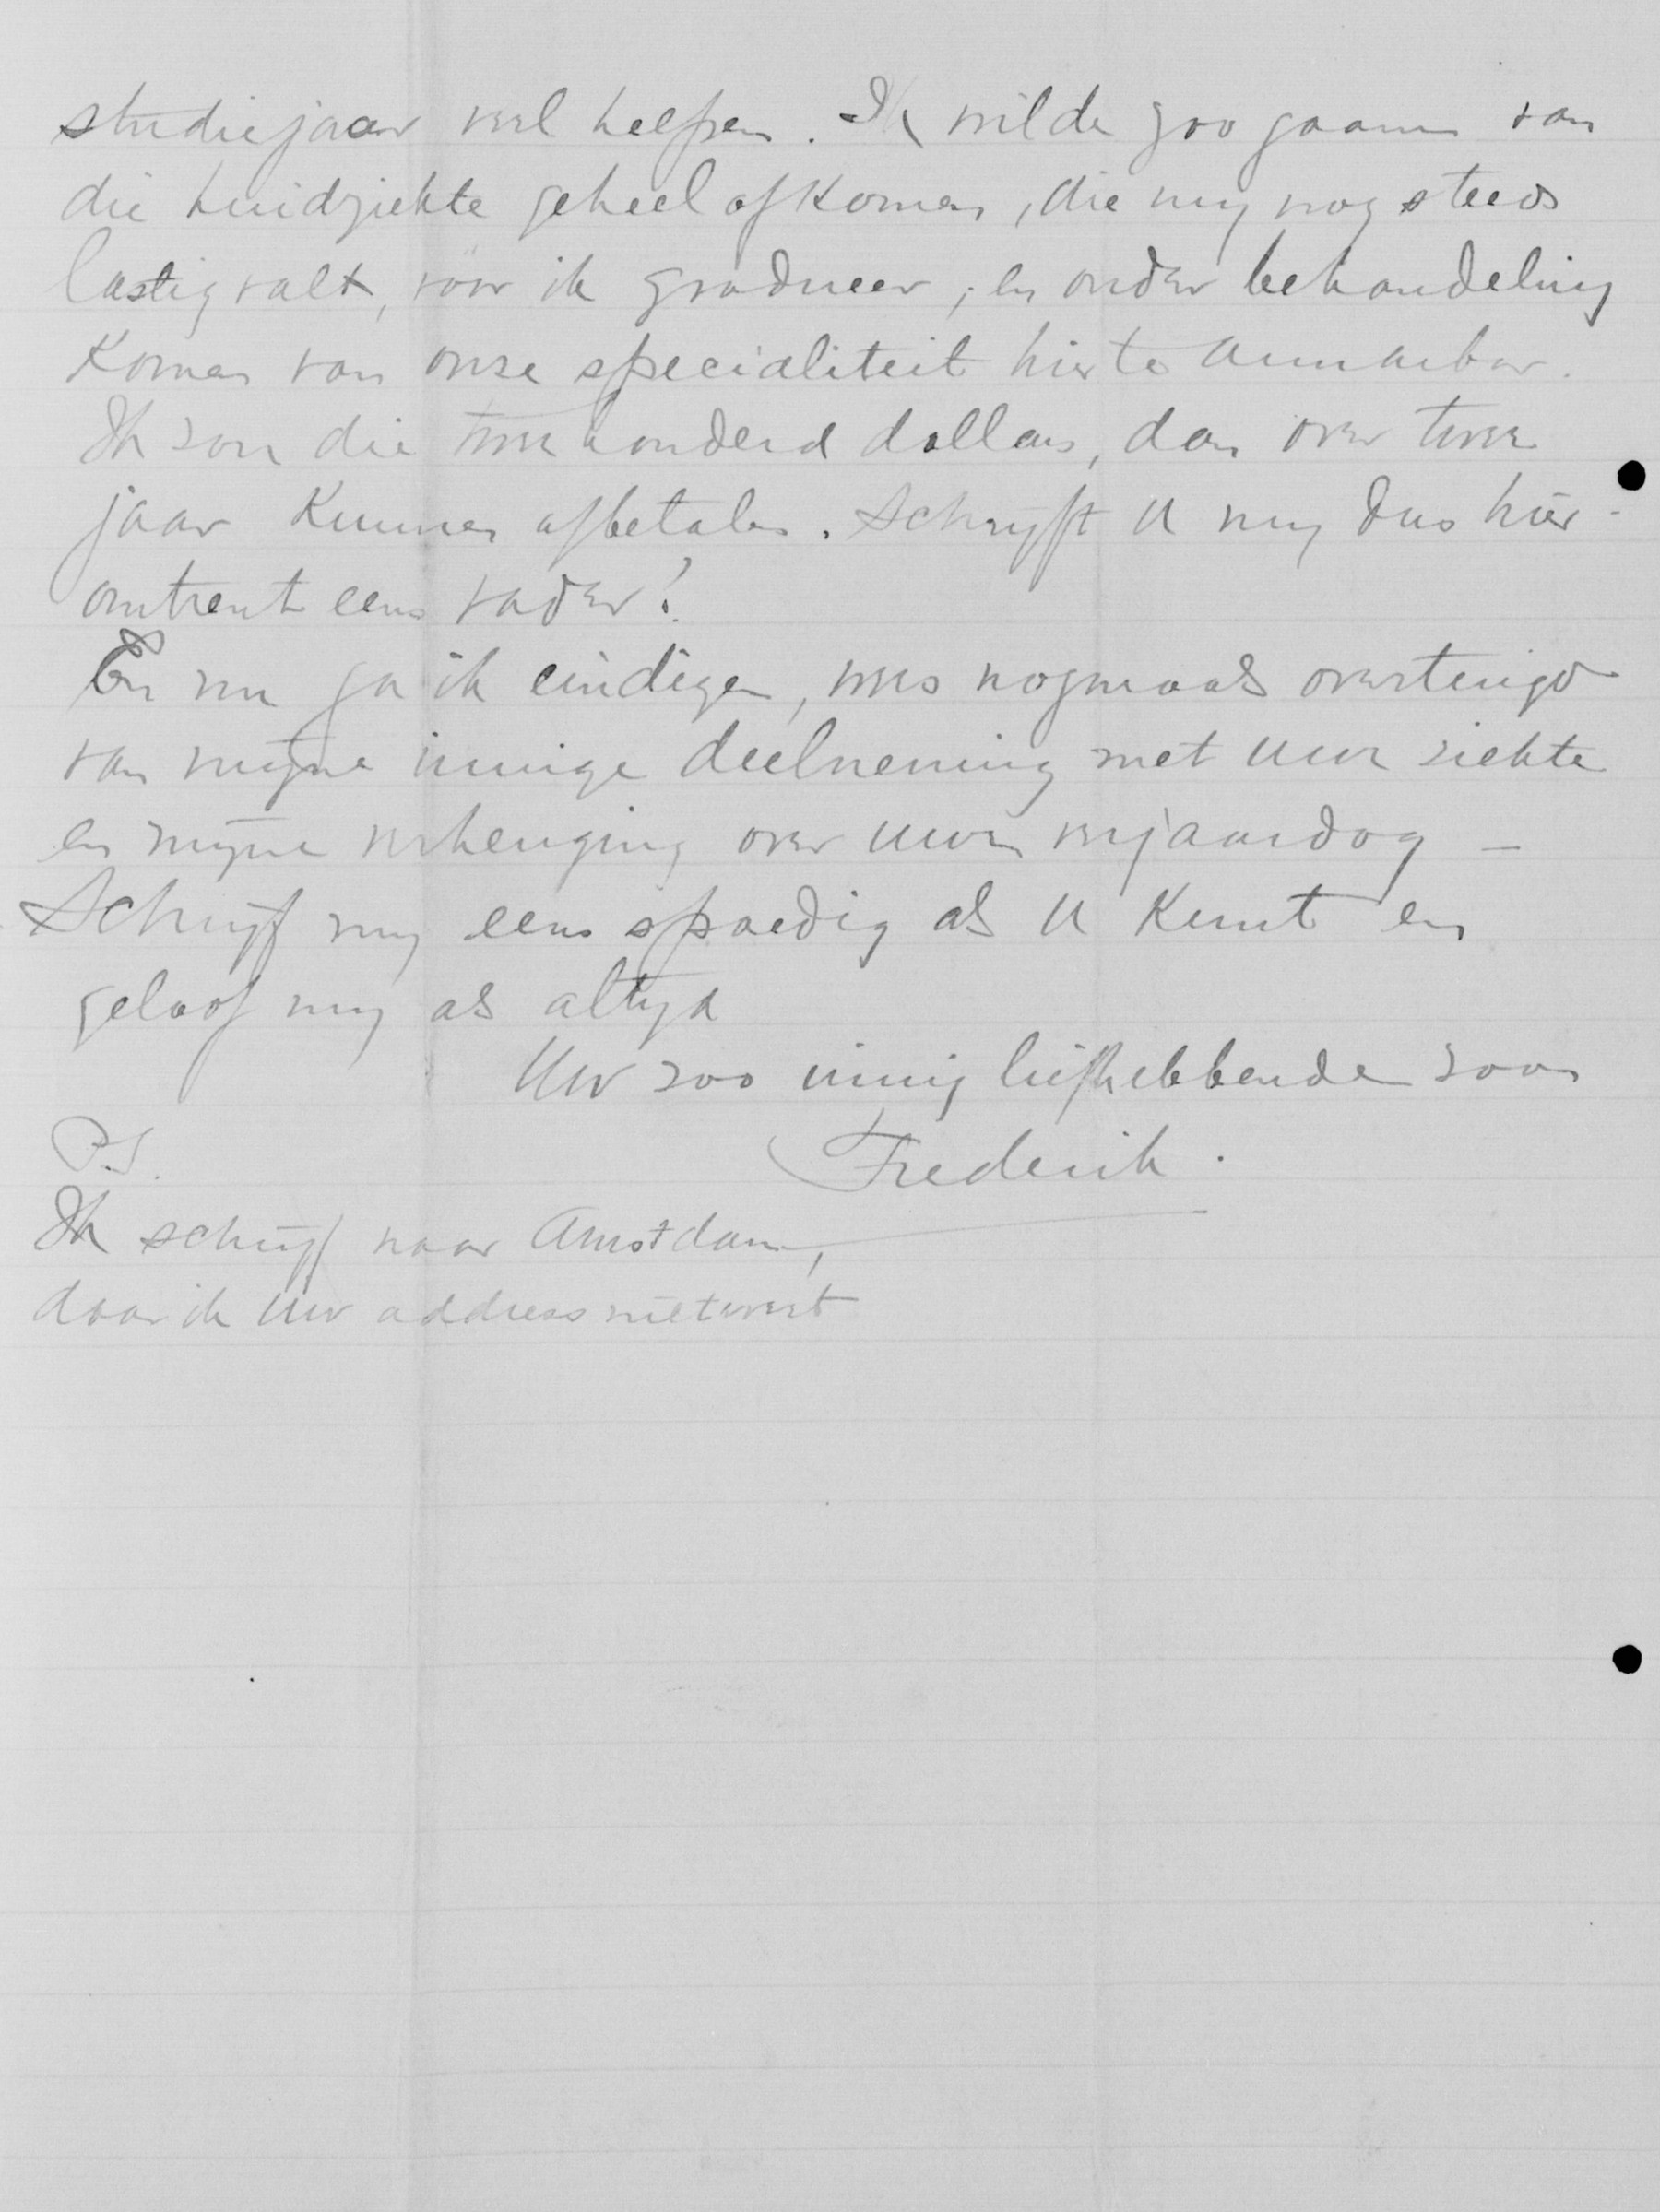 studiejaar veel helpen. Ik wilde zoo gaarne van
die huidziekte geheel afkomen, die my nog steeds
lastig valt, vóór ik gradueer, en onder behandeling
komen van onze specialiteit hier te Annarbor.
Ik zou die twee honderd dollars, dan over twee
jaar kunnen afbetalen. Schryft U my dus hier-
omtrent eens vader!
En nu ga ik eindigen, wees nogmaals overtuigd
van mijne innige deelneming met uwe ziekte
en mijne verheuging over uwen verjaardag –
Schrijf my eens spoedig als U kunt en
geloof my als altyd
Uw zoo innig liefhebbende zoon
Frederik.
P.S.
Ik schrijf naar Amstdam,
daar ik Uw address niet weet